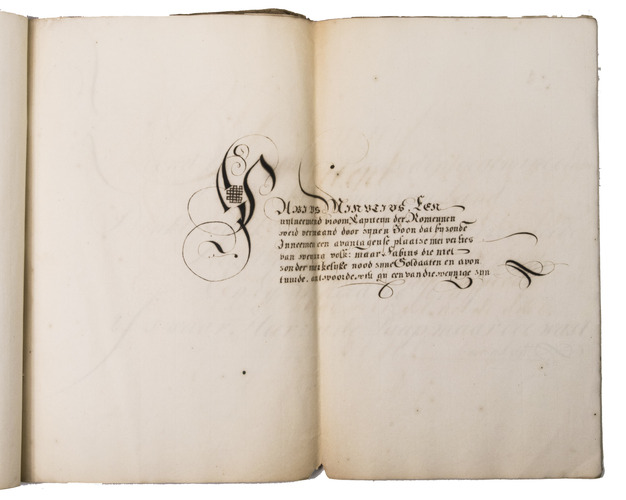 FABIUS MINUTIUS Een
uytnemend vroom Capiteyn der Romeynen
weid vermaand door zynen Zoon dat hy zoude
Inneemen een avantagense plaatze met verlies
van weynig volk: maar Fabius die niet
zonder merkelyke nood zyne Soldaaten en avon
tuurde, antwoorde, wilt gy een van die weynige zyn